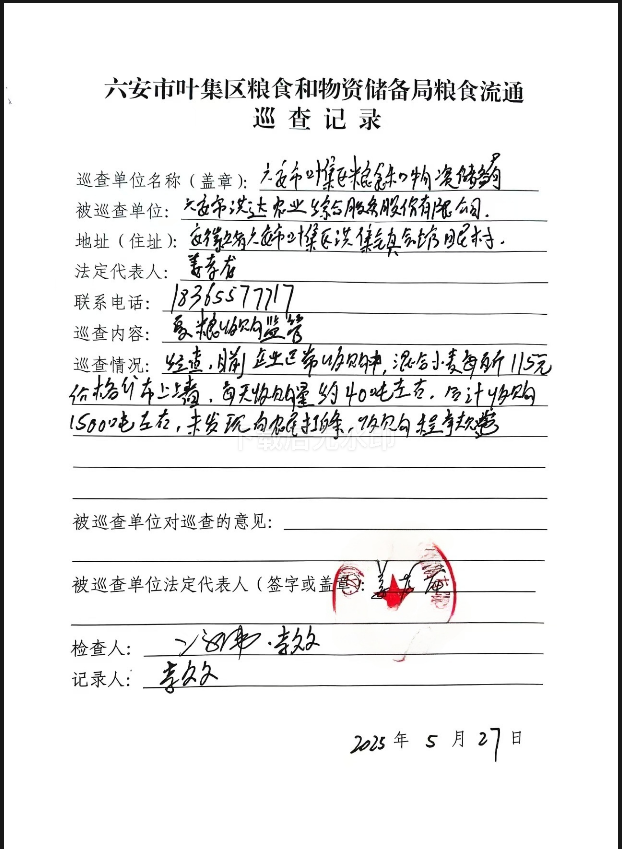 六安市叶集区粮食和物资储备局粮食流通
巡查记录
巡查单位名称（盖章）：六安市叶集区粮食和物资储备局
被巡查单位：六安市洪达农业综合服务股份有限公司.
地址（住址）：安徽省六安市叶集区洪集镇会馆村.
法定代表人：姜孝龙
联系电话：18365577717
巡查内容：夏粮收购监管
巡查情况：经查，目前企业正常收购中，混合小麦每斤1.15元
价格公布上墙，每天收购量约40吨左右，合计收购
1500吨左右，未发现向农民打白条，收购程序规范
被巡查单位对巡查的意见：
被巡查单位法定代表人（签字或盖章）：姜
检查人：李文文
记录人：李文文
2025年5月27日
下载后无水印